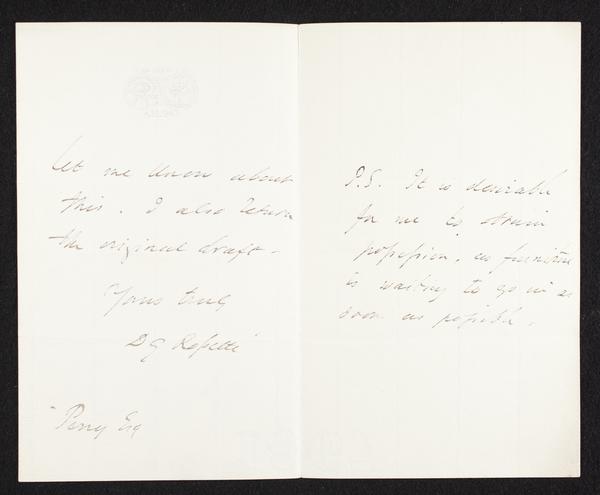 Let me know about
this. I also return
the original draft –
Yours truly
D G Rossetti
Perry Esq
P.S. It is desirable
for me to obtain
possession, as furniture
is waiting to go in as
soon as possible.